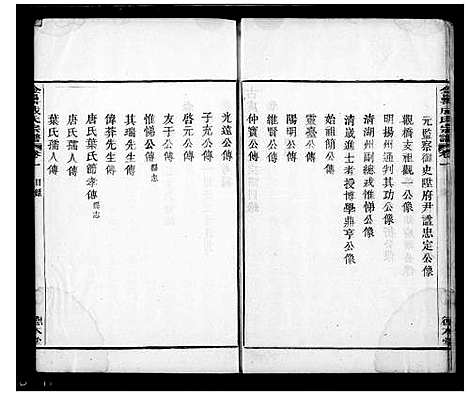 元監察御史陞府尹諡忠定公像
觀橋支祖觀一公像
明揚州通判其功公像
清湖州副總戎惟悌公像
清歲進士考授博學鼎亨公像
始祖簡公傳
靈臺公傳
陽明公傳
維城公傳
仲寶公傳
光遠公傳
子充公傳
啓元公傳
友于公傳
惟悌公傳 縣志
其瑞先生傳
偉菶先生傳
唐氏葉氏節孝傳 縣志
唐氏孺人傳
葉氏孺人傳
卷一 目錄